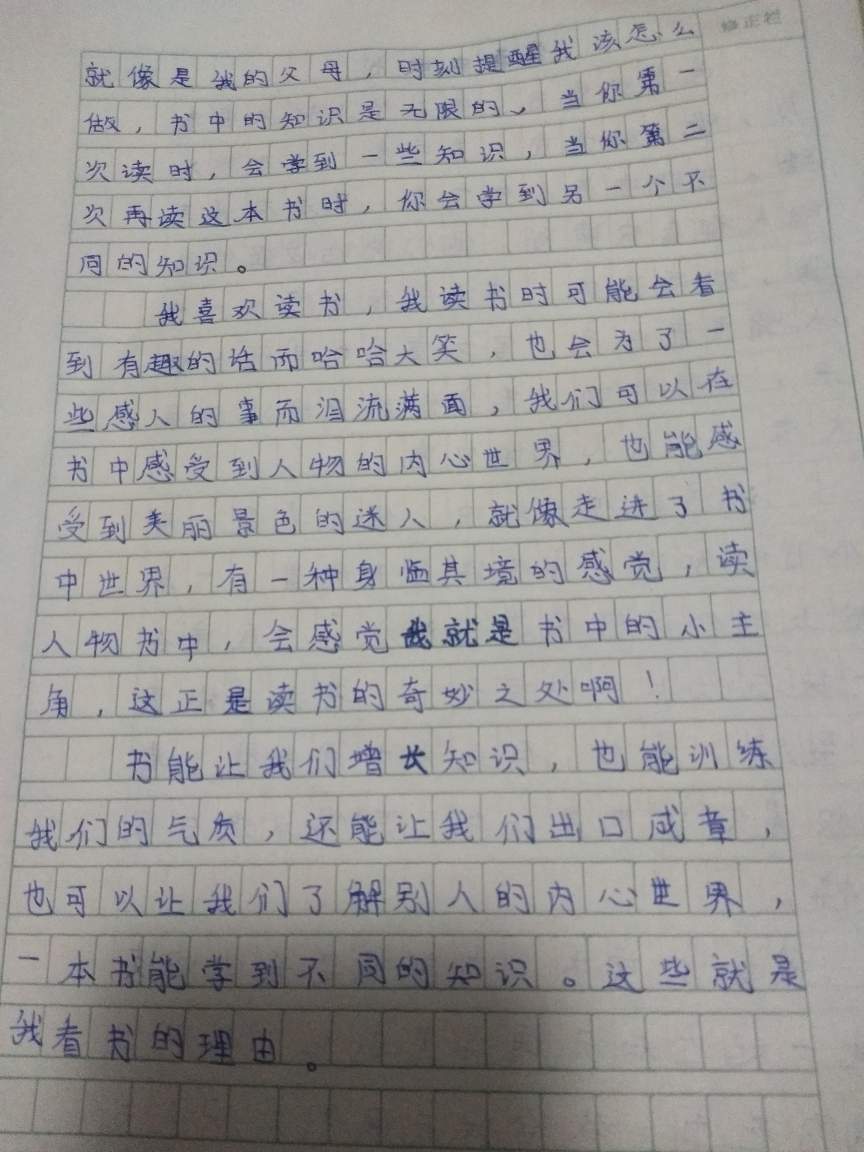 修正栏
就像是我的父母，时刻提醒我该怎么
做，书中的知识是无限的、当你第一
次读时，会学到一些知识，当你第二
次再读这本书时，你会学到另一个不
同的知识。
我喜欢读书，我读书时可能会看
到有趣的话而哈哈大笑，也会为了一
些感人的事而泪流满面，我们可以在
书中感受到人物的内心世界，也能感
受到美丽景色的迷人，就像走进了书
中世界，有一种身临其境的感觉，读
人物书中，会感觉我就是书中的小主
角，这正是读书的奇妙之处啊！
书能让我们增长知识，也能训练
我们的气质，还能让我们出口成章，
也可以让我们了解别人的内心世界，
一本书能学到不同的知识。这些就是
我看书的理由。